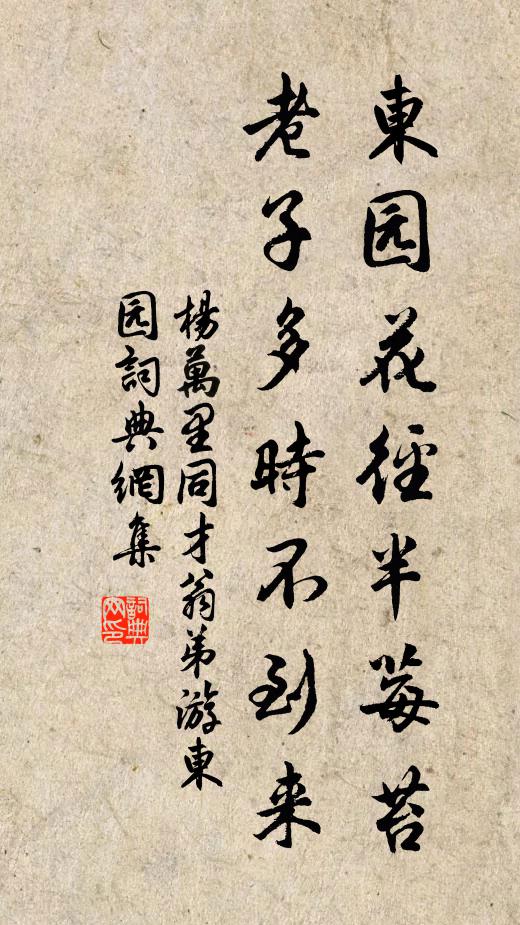 東园花徑半莓苔
老子多時不到来
楊萬里同才翁弟游東
园詞典網集
詞典网印